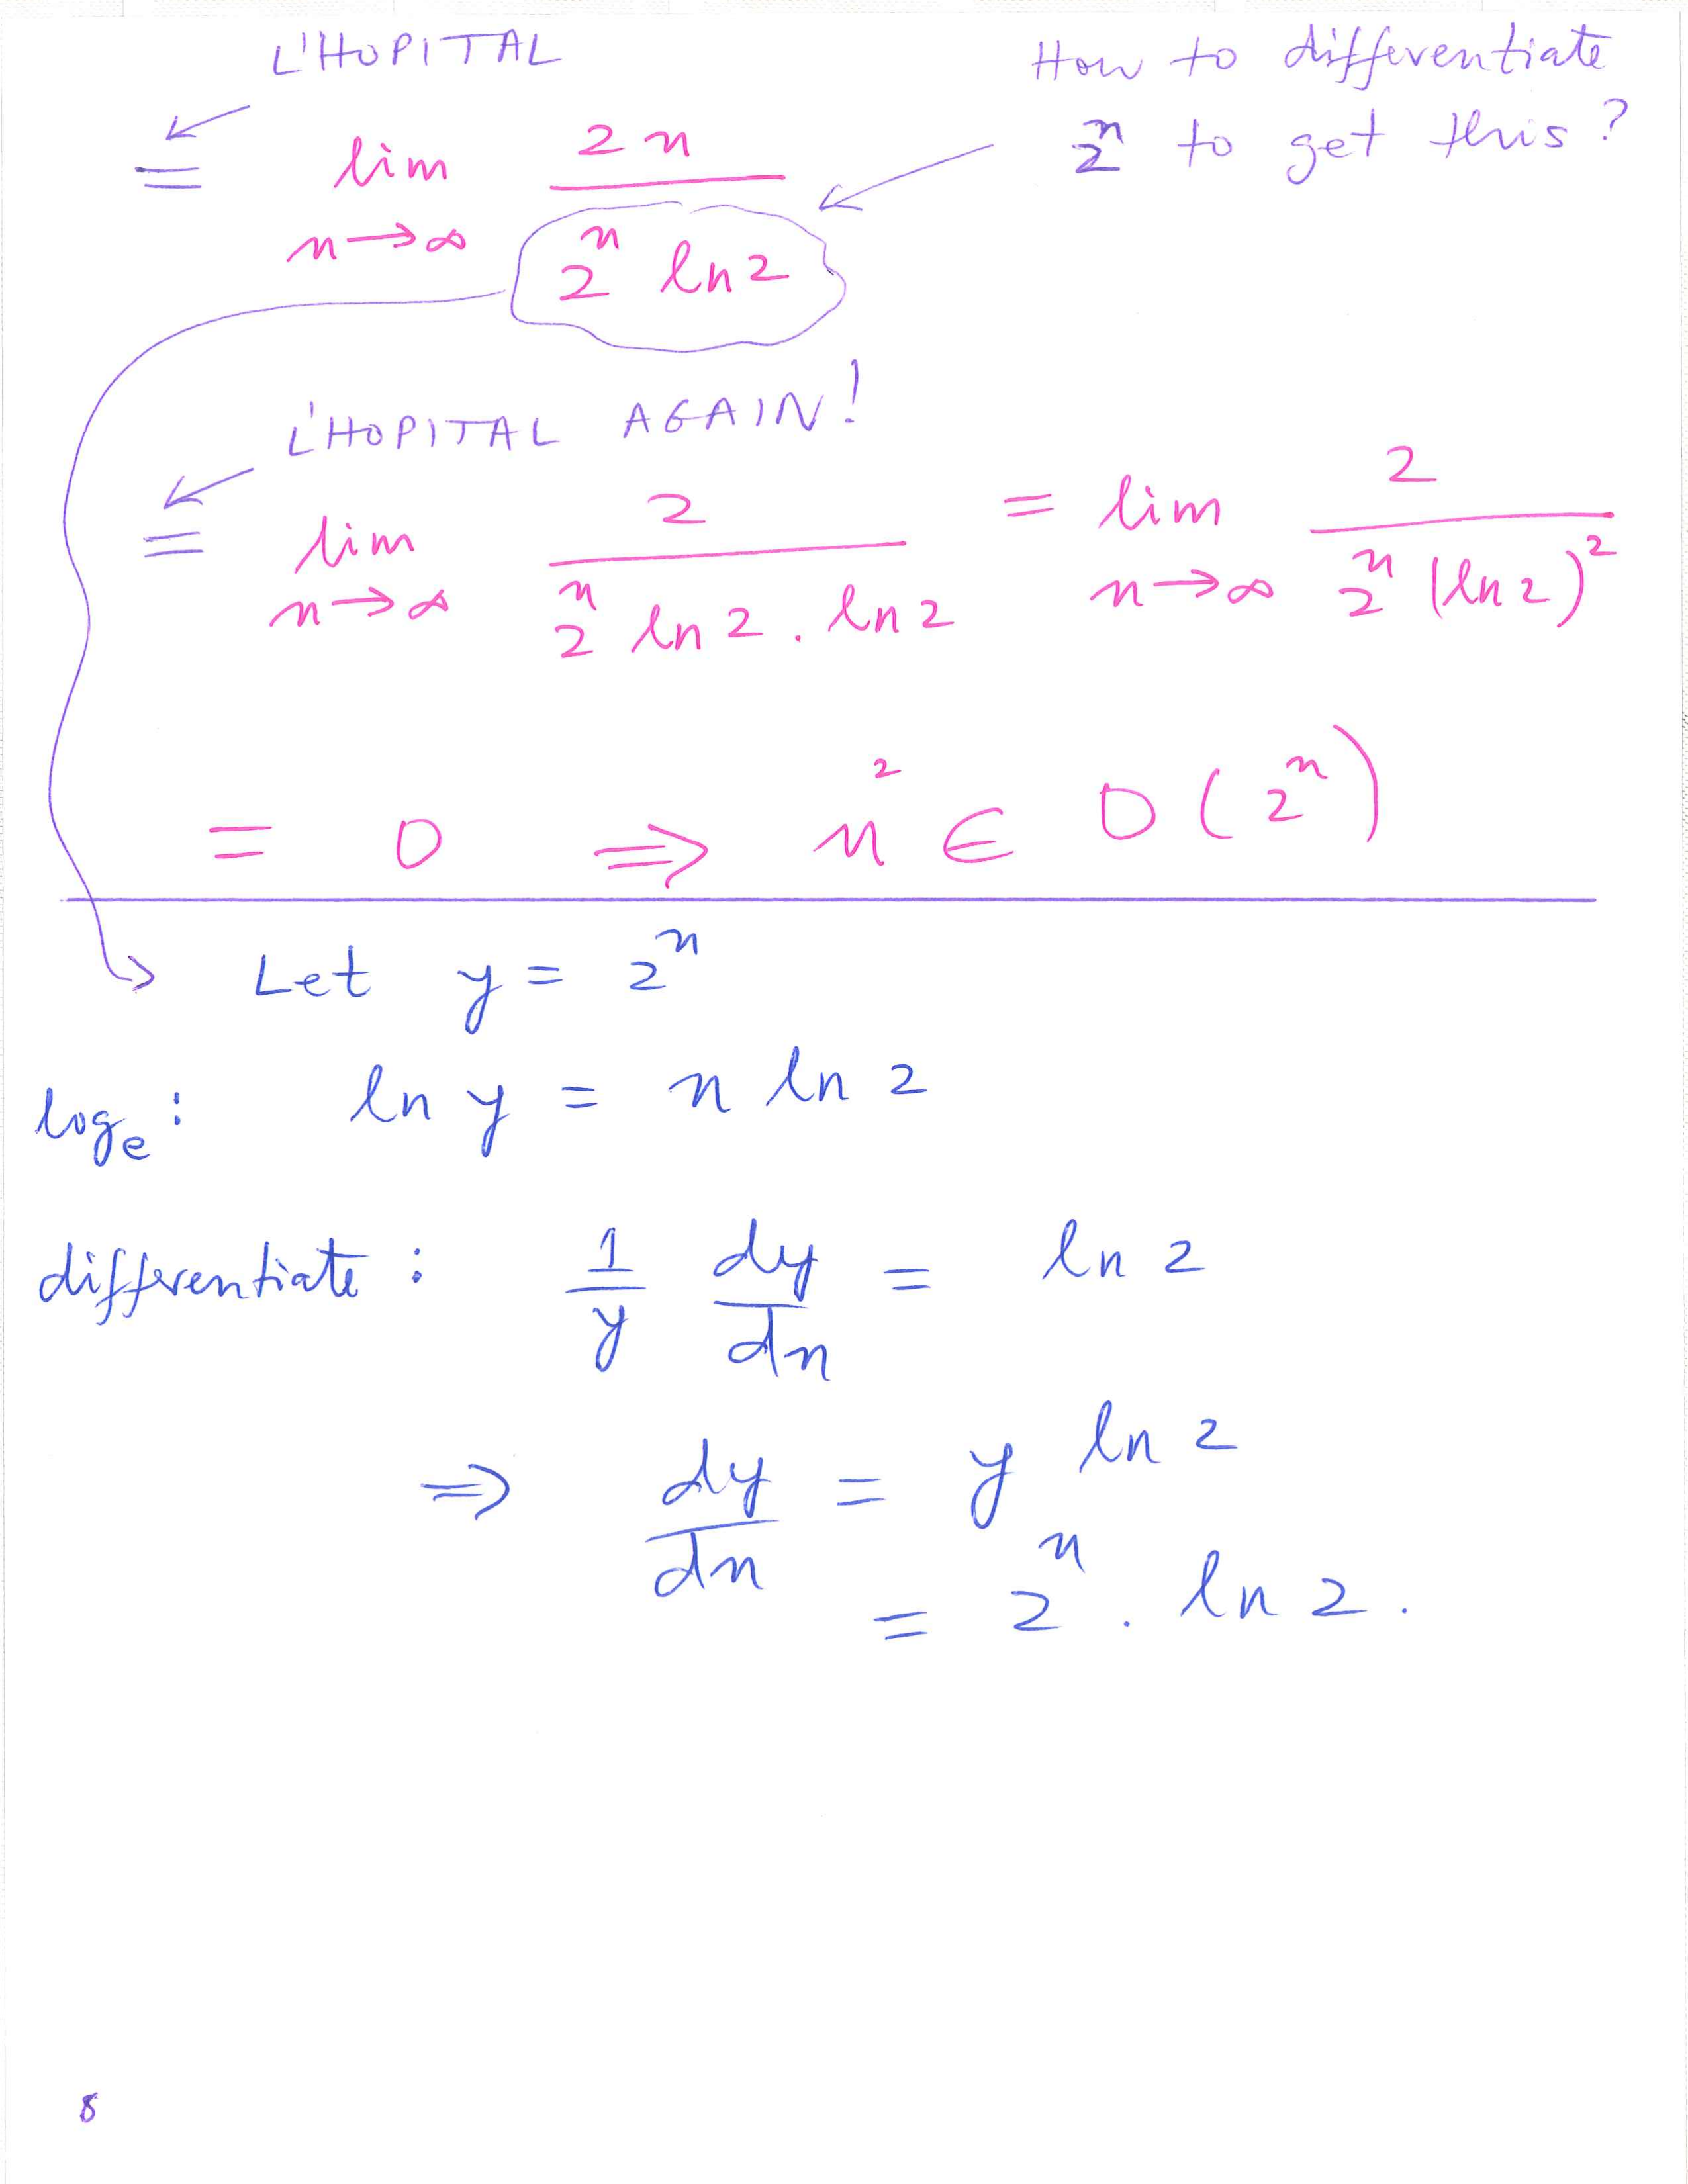 L'HOPITAL
How to differentiate
2^n to get this?
= lim n→∞ 2n / (2^n ln 2)
L'HOPITAL AGAIN!
= lim n→∞ 2 / (2^n ln 2 . ln 2) = lim n→∞ 2 / (2^n (ln 2)^2)
= 0 ⇒ n^2 ∈ O(2^n)
Let y = 2^n
log_e : ln y = n ln 2
differentiate : 1/y dy/dn = ln 2
⇒ dy/dn = y ln 2
= 2^n . ln 2 .
8